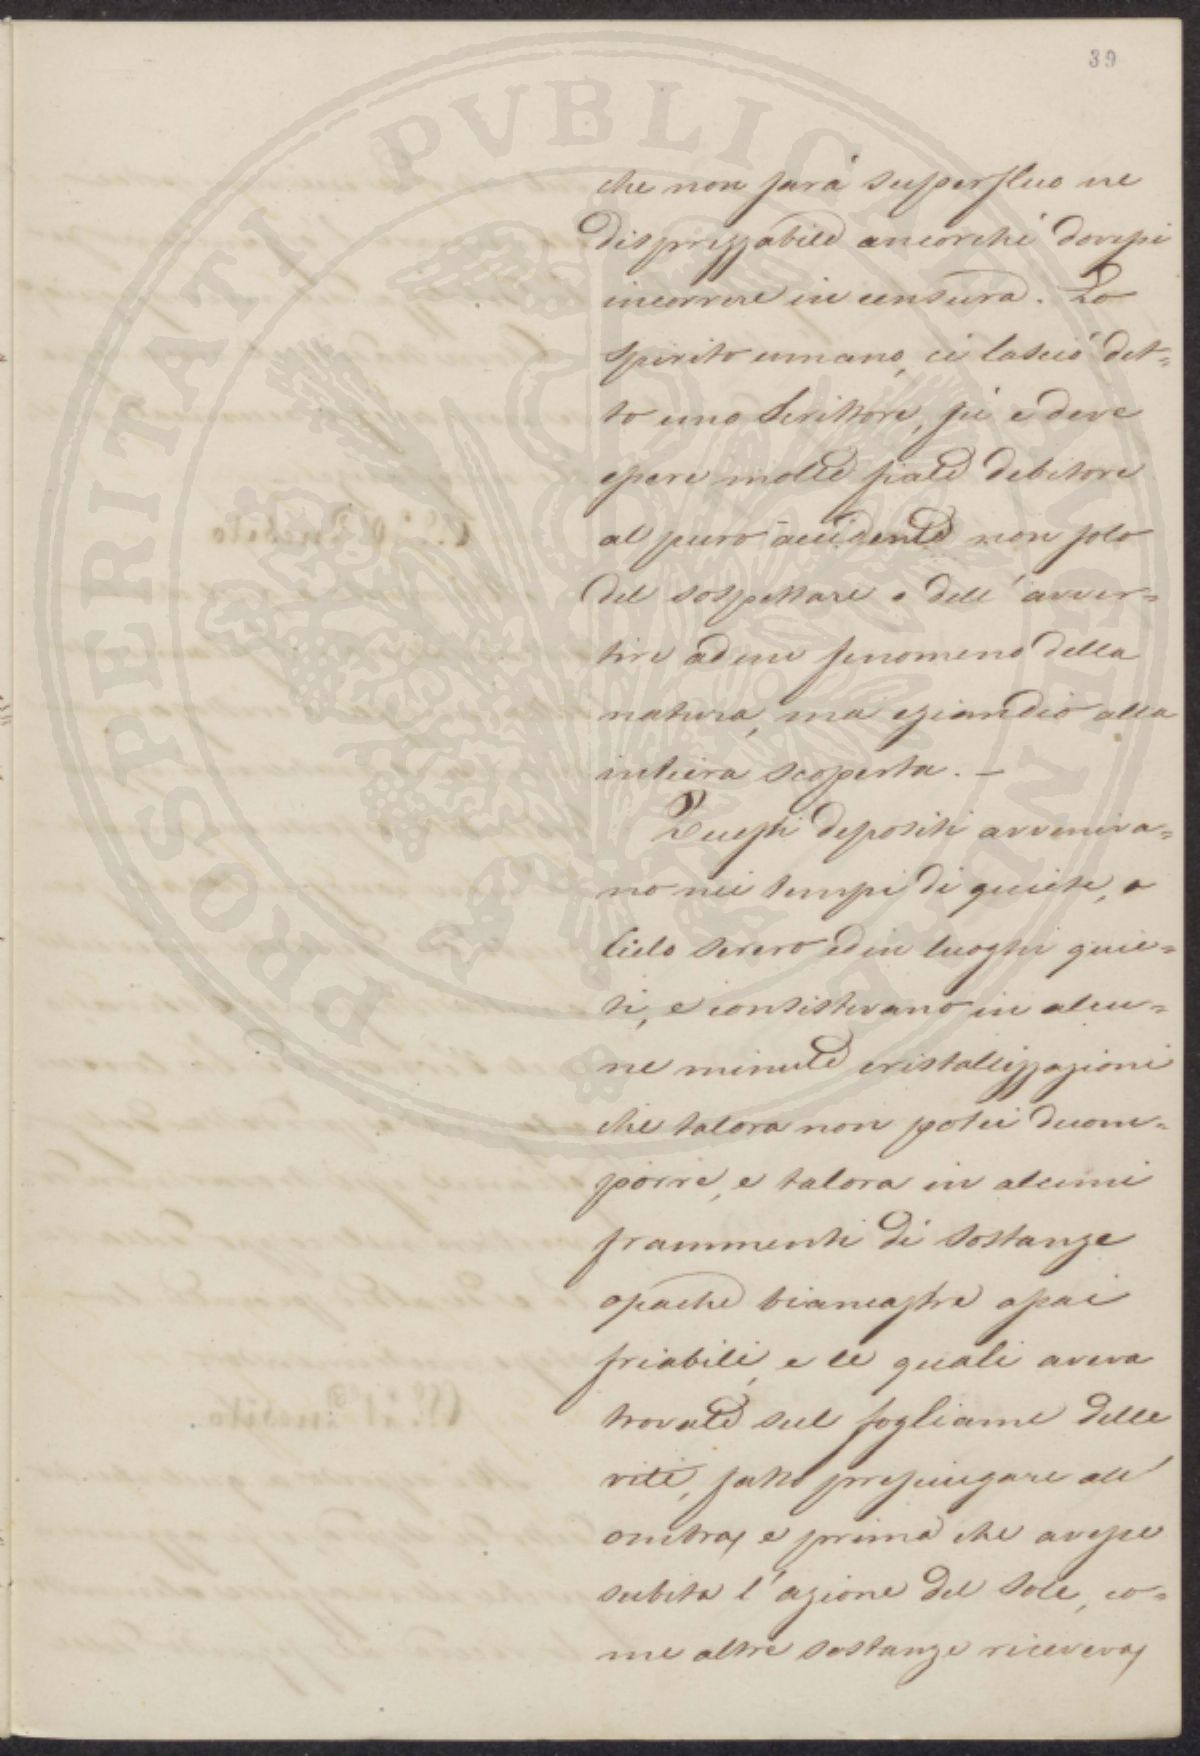 39
che non sarà superfluo ne
disprezzabile ancorché dovessi
incorrere in censura. Lo
spirito umano, ci lasciò det=
to uno Scrittore, fù e deve
essere molte fiate debitore
al puro accidente non solo
del sospettare e dell' avver=
tire ad un fenomeno della
natura, ma eziandio alla
intiera scoperta. –
Questi depositi avveniva=
no nei tempi di quiete, a
Cielo sereno ed in luoghi quie=
ti, e consistevano in alcu=
ne minute cristallizzazioni
che talora non potei decom=
porre, e talora in alcuni
frammenti di sostanze
opache biancastre assai
friabili, e le quali aveva
trovate sul fogliame delle
viti, fatto prosciugare all'
ombra, e prima che avesse
subita l'azione del Sole, co=
me altre sostanze riceveva,
PROSPERITATI PVBLICAE AVGENDAE